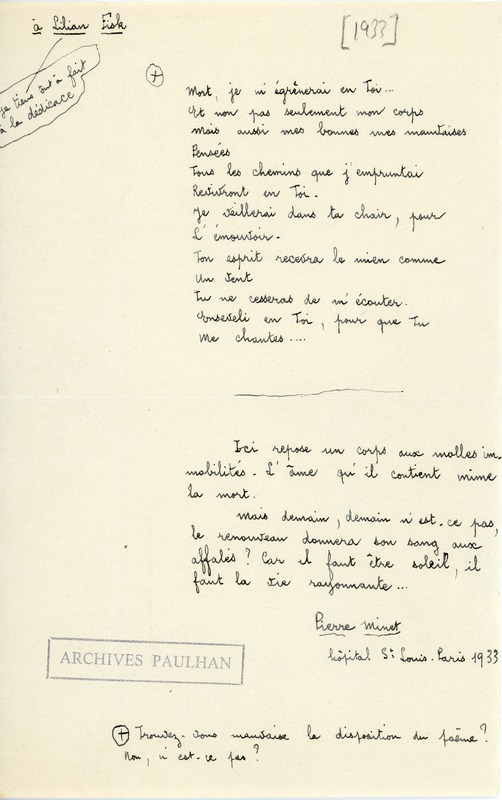 à Lilian Fisk
[1933]
je tiens tout à fait
à la dédicace
+
Mort, je m'égrènerai en Toi...
Et non pas seulement mon corps
Mais aussi mes bonnes mes mauvaises
Pensées
Tous les chemins que j'empruntai
Revivront en Toi.
Je veillerai dans ta chair, pour
L'émouvoir.
Ton esprit recevra le mien comme
Un vent
Tu ne cesseras de m'écouter.
Enseveli en Toi, pour que Tu
Me chantes....
Ici repose un corps aux molles im-
mobilités. L'âme qu'il contient mime
la mort.
Mais demain, demain n'est-ce pas,
le renouveau donnera son sang aux
affalés ? Car il faut être soleil, il
faut la vie rayonnante...
Pierre Minet
hôpital St Louis. Paris 1933
ARCHIVES PAULHAN
+ Trouvez-vous mauvaise la disposition du poème ?
Non, n'est-ce pas ?